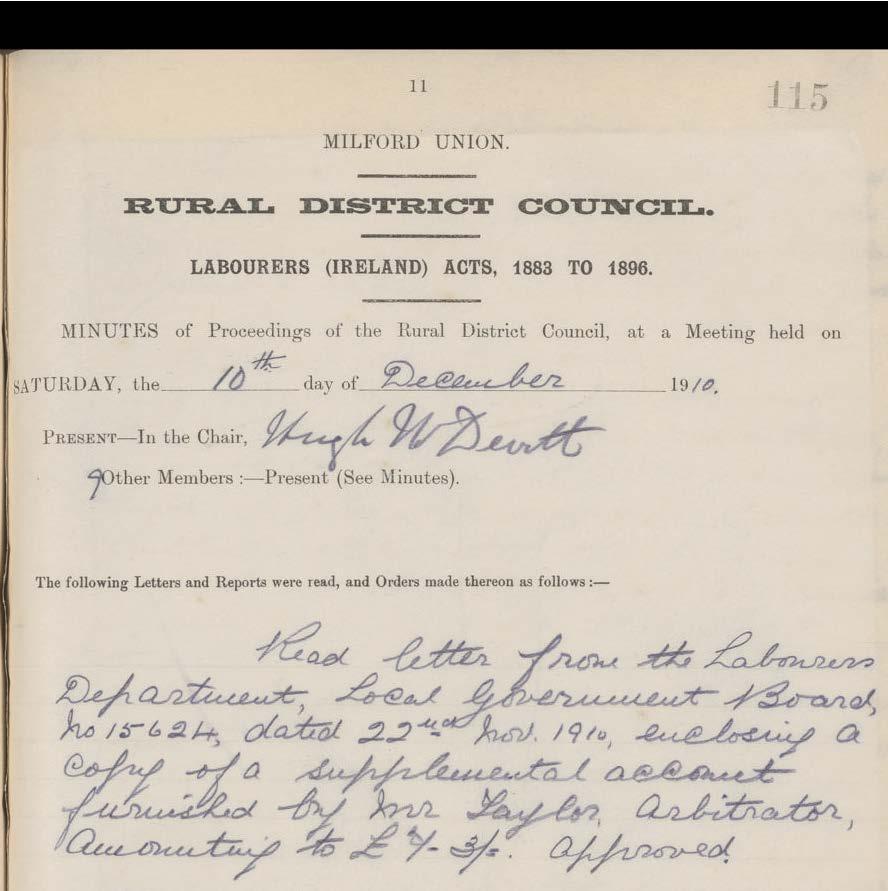 11
115
MILFORD UNION.
RURAL DISTRICT COUNCIL.
LABOURERS (IRELAND) ACTS, 1883 TO 1896.
MINUTES of Proceedings of the Rural District Council, at a Meeting held on
SATURDAY, the 10th day of December 1910.
PRESENT—In the Chair, Hugh McDevitt
9 Other Members :—Present (See Minutes).
The following Letters and Reports were read, and Orders made thereon as follows :—
Read letter from the Labourers
Department, Local Government Board,
No 15624, dated 22nd Nov. 1910, enclosing a
copy of a supplemental account
furnished by Mr Taylor, Arbitrator,
Amounting to £ 3/-. Approved.